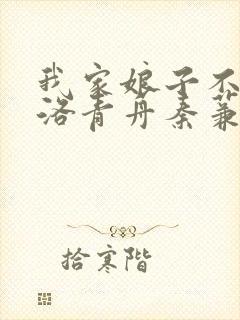 我家娘子不
洛青丹秦蒹
拾寒階